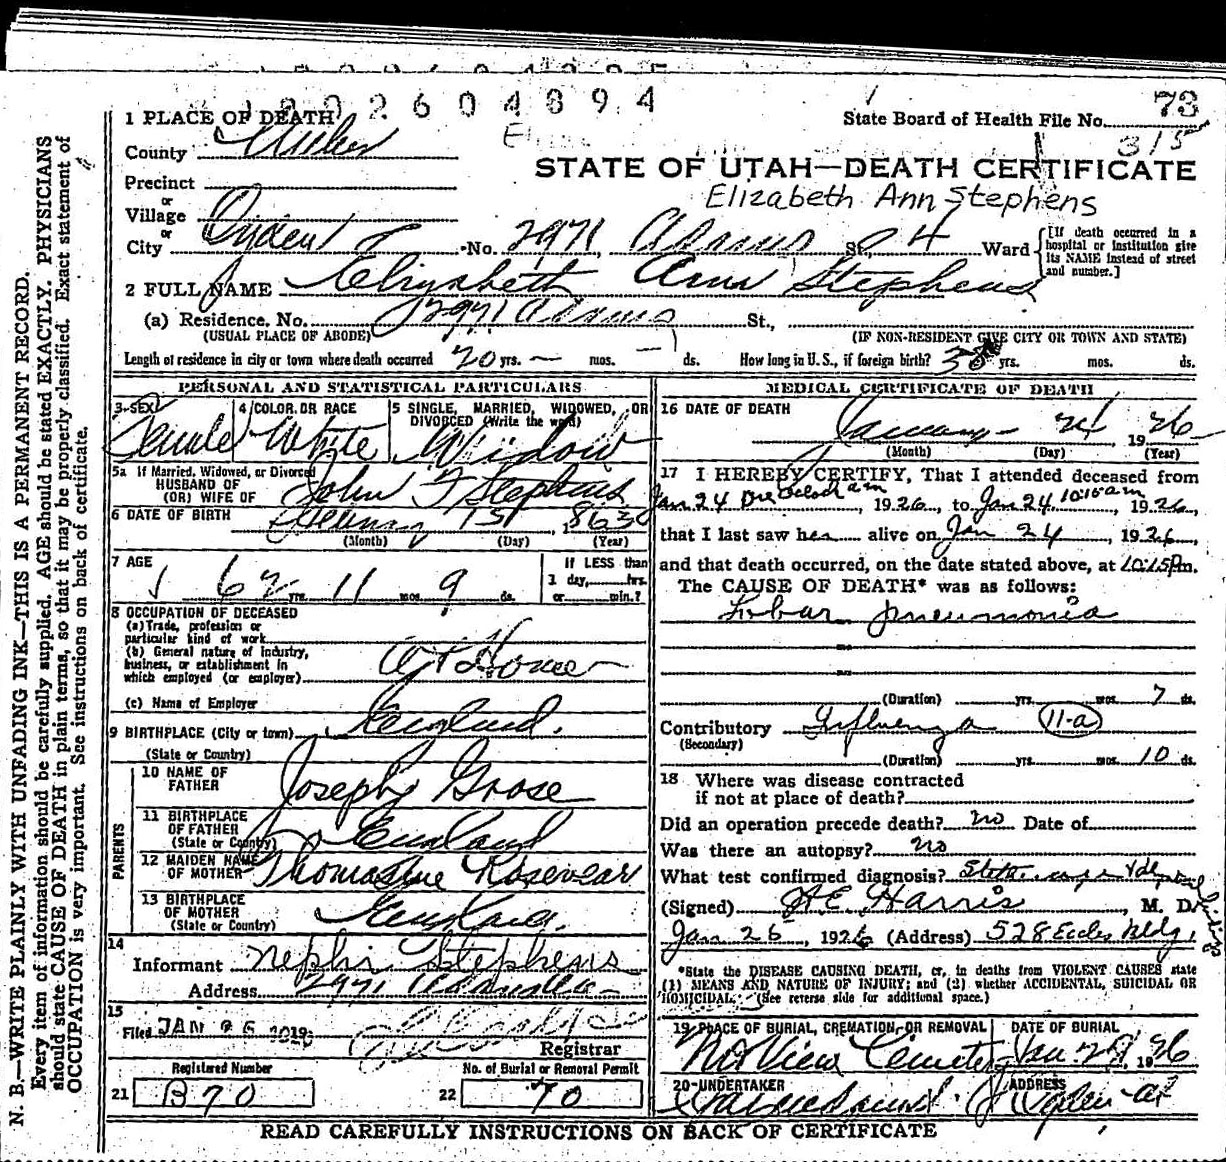 1002604894
73
State Board of Health File No.
315
1 PLACE OF DEATH
County
STATE OF UTAH—DEATH CERTIFICATE
Precinct
or
Elizabeth Ann Stephens
Village
or
City Ogden No. 2971 Adams St. 4 Ward
[If death occurred in a hospital or institution give its NAME instead of street and number.]
2 FULL NAME Elizabeth Ann Stephens
(a) Residence, No. 2971 Adams St.,
(USUAL PLACE OF ABODE) (IF NON-RESIDENT GIVE CITY OR TOWN AND STATE)
Length of residence in city or town where death occurred 20 yrs. — mos. — ds. How long in U.S., if foreign birth? yrs. mos. ds.
PERSONAL AND STATISTICAL PARTICULARS
3 SEX Female
4 COLOR OR RACE White
5 SINGLE, MARRIED, WIDOWED, OR DIVORCED (Write the word) Widow
5a If Married, Widowed, or Divorced
HUSBAND OF
(OR) WIFE OF John F Stephens
6 DATE OF BIRTH 15, 1863
(Month) (Day) (Year)
7 AGE 62 yrs. 11 mos. 9 ds.
If LESS than 1 day, hrs. or min.?
8 OCCUPATION OF DECEASED
(a) Trade, profession or particular kind of work
(b) General nature of Industry, business, or establishment in which employed (or employer) At Home
(c) Name of Employer
9 BIRTHPLACE (City or town) England.
(State or Country)
PARENTS
10 NAME OF FATHER Joseph Grose
11 BIRTHPLACE OF FATHER England
(State or Country)
12 MAIDEN NAME OF MOTHER Thomasine Rosevear
13 BIRTHPLACE OF MOTHER England.
(State or Country)
14
Informant Nephi Stephens
Address 2971 Adams Ave
15
Filed JAN 26
Registrar
Registered Number
21 B 70
No. of Burial or Removal Permit
22 70
MEDICAL CERTIFICATE OF DEATH
16 DATE OF DEATH January 24 1926
(Month) (Day) (Year)
17 I HEREBY CERTIFY, That I attended deceased from
Jan 24 am, 1926, to Jan 24 10:15 am, 1926,
that I last saw her alive on Jan 24, 1926,
and that death occurred, on the date stated above, at 10:15 m.
The CAUSE OF DEATH* was as follows:
Lobar pneumonia
(Duration) yrs. mos. 7 ds.
Contributory Influenza 11-a
(Secondary)
(Duration) yrs. mos. 10 ds.
18 Where was disease contracted
if not at place of death?
Did an operation precede death? no Date of
Was there an autopsy? no
What test confirmed diagnosis?
(Signed) H E. Harris, M. D.
Jan 26, 1926 (Address) 528 Eccles bldg.
*State the DISEASE CAUSING DEATH, or, in deaths from VIOLENT CAUSES state
(1) MEANS AND NATURE OF INJURY; and (2) whether ACCIDENTAL, SUICIDAL OR
HOMICIDAL. (See reverse side for additional space.)
19 PLACE OF BURIAL, CREMATION OR REMOVAL DATE OF BURIAL
Cemetery Jan 1926
20 UNDERTAKER ADDRESS
Ogden
READ CAREFULLY INSTRUCTIONS ON BACK OF CERTIFICATE
N. B.—WRITE PLAINLY WITH UNFADING INK—THIS IS A PERMANENT RECORD.
Every item of information should be carefully supplied. AGE should be stated EXACTLY. PHYSICIANS
should state CAUSE OF DEATH in plain terms, so that it may be properly classified. Exact statement of
OCCUPATION is very important. See instructions on back of certificate.